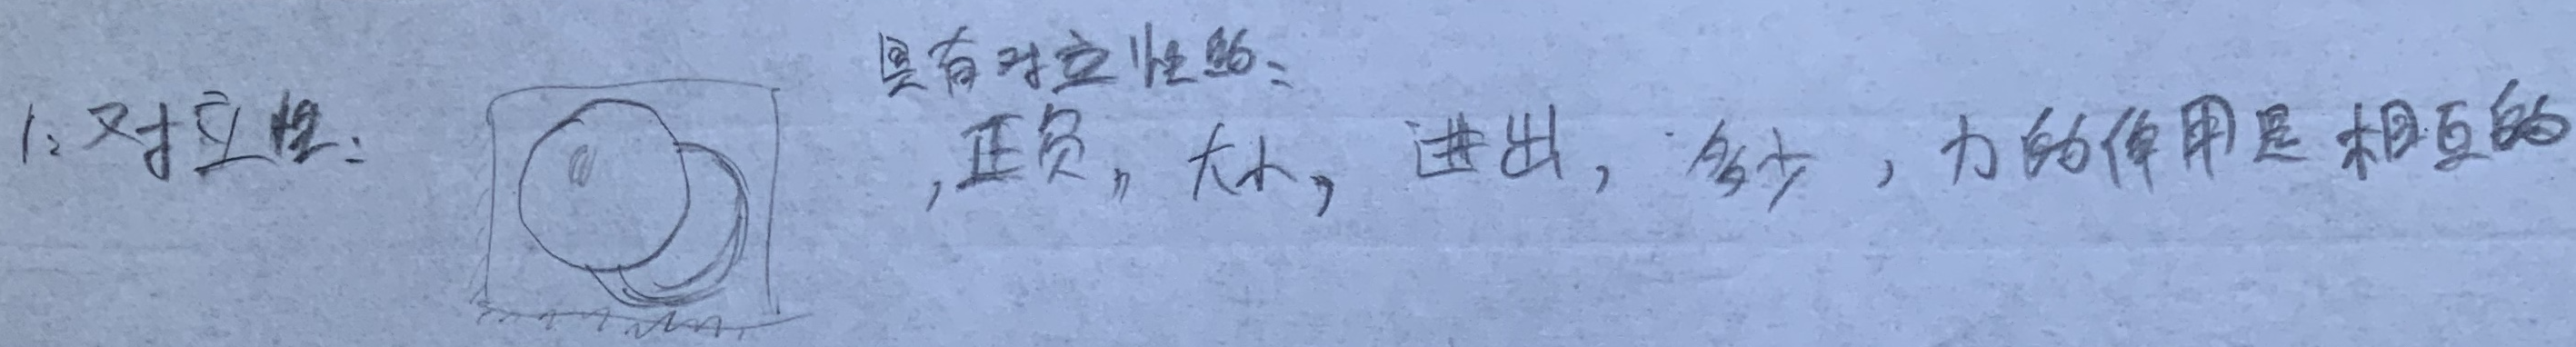 具有对立性的：
1：对立性：
，正负，，大小，进出，多少，力的作用是相互的